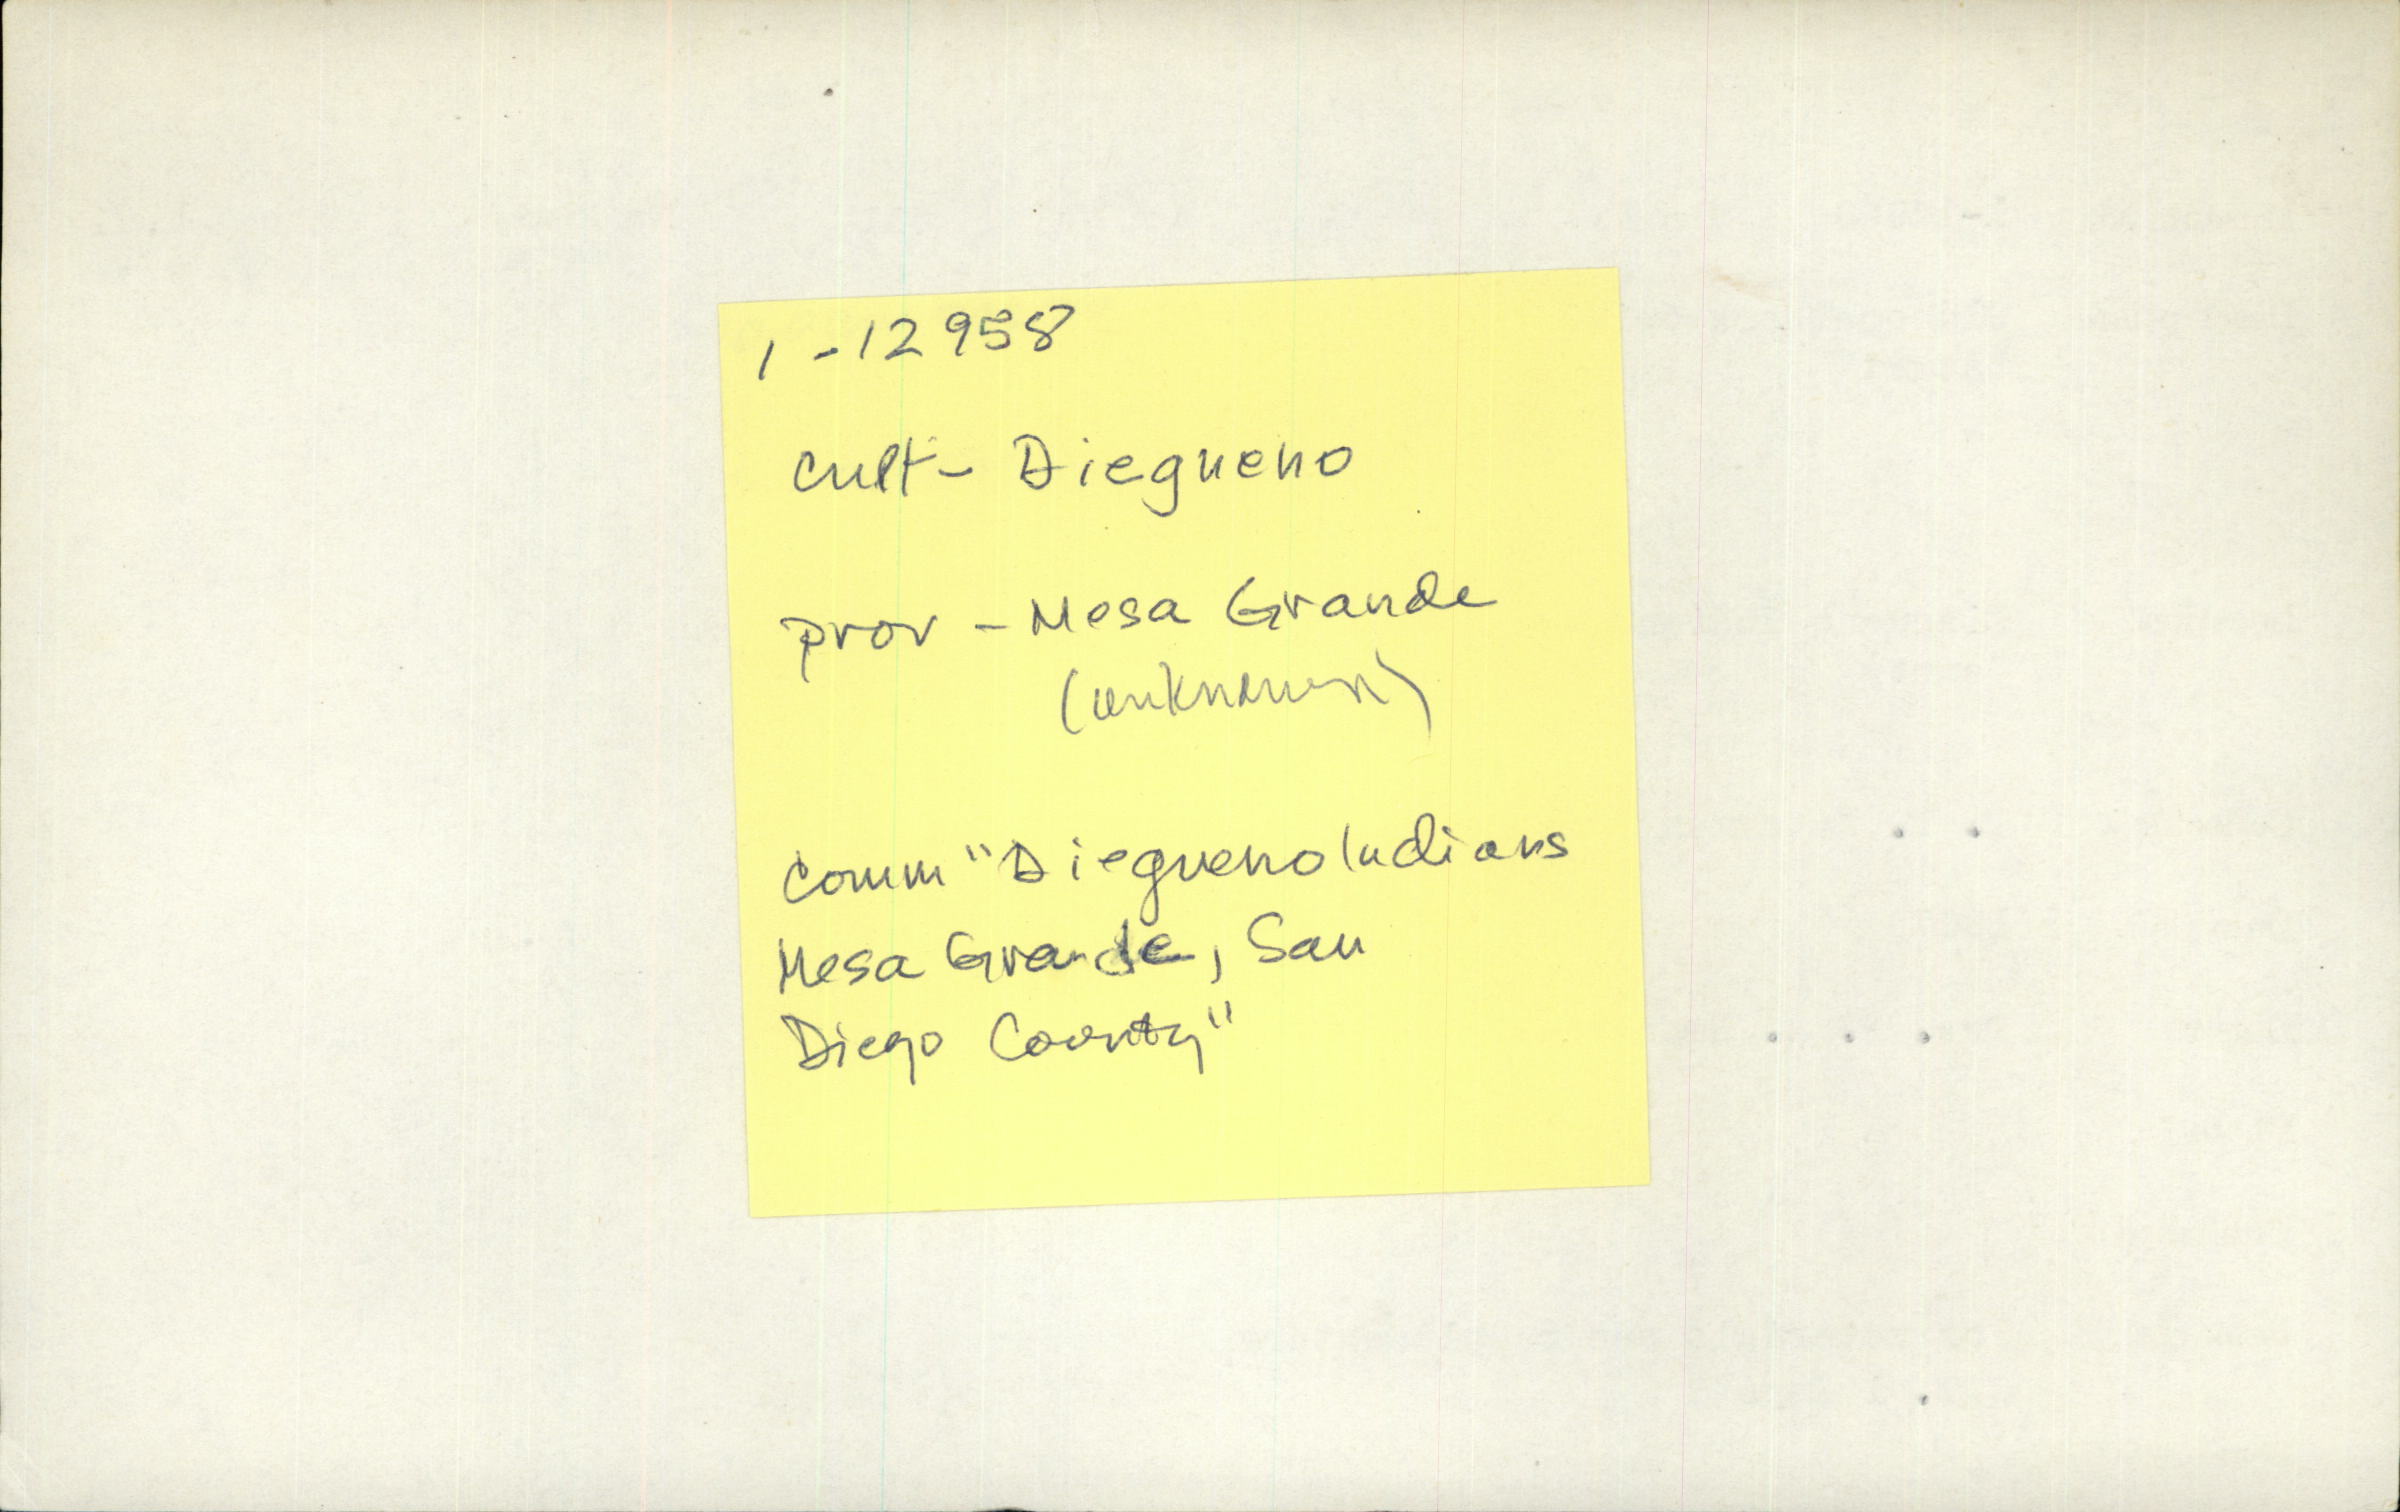 1-12958
cult- Diegueno
prov - Mesa Grande
(unknown)
Comm "Diegueno Indians
Mesa Grande, San
Diego County"